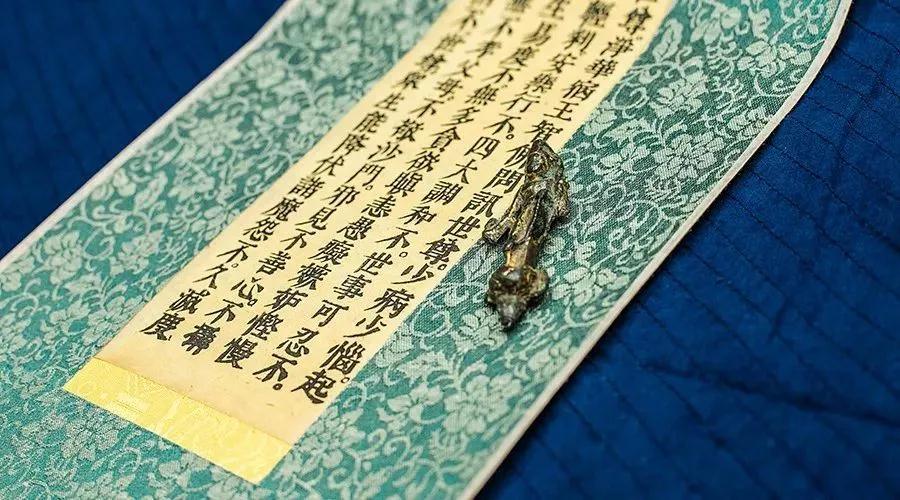 尊。淨華宿王智佛問訊世尊。少病少惱。起
輕利安樂行不。四大調和不。世事可忍不。
生易度不。無多貪欲瞋恚愚癡嫉妬慳慢
無不孝父母。不敬沙門。邪見不善心。不攝
不。世尊。眾生能降伏諸魔怨不。久滅度